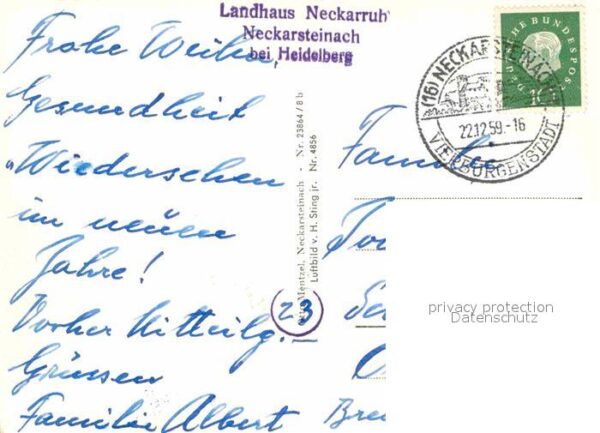 Landhaus Neckarruh
Neckarsteinach
bei Heidelberg
Frohe Weihn
Gesundheit
Wiedersehen
im neuen
Jahre!
Vorher Mitteilg.
Grüssen
Familie Albert
Mentzel, Neckarsteinach - Nr. 23864/8 b
Luftbild v. H. Sting jr. Nr. 4856
23
DEUTSCHE BUNDESPOST
10
(16) NECKARSTEINACH
22.12.59.-16
VIERBURGENSTADT
Familie
privacy protection
Datenschutz
Bre